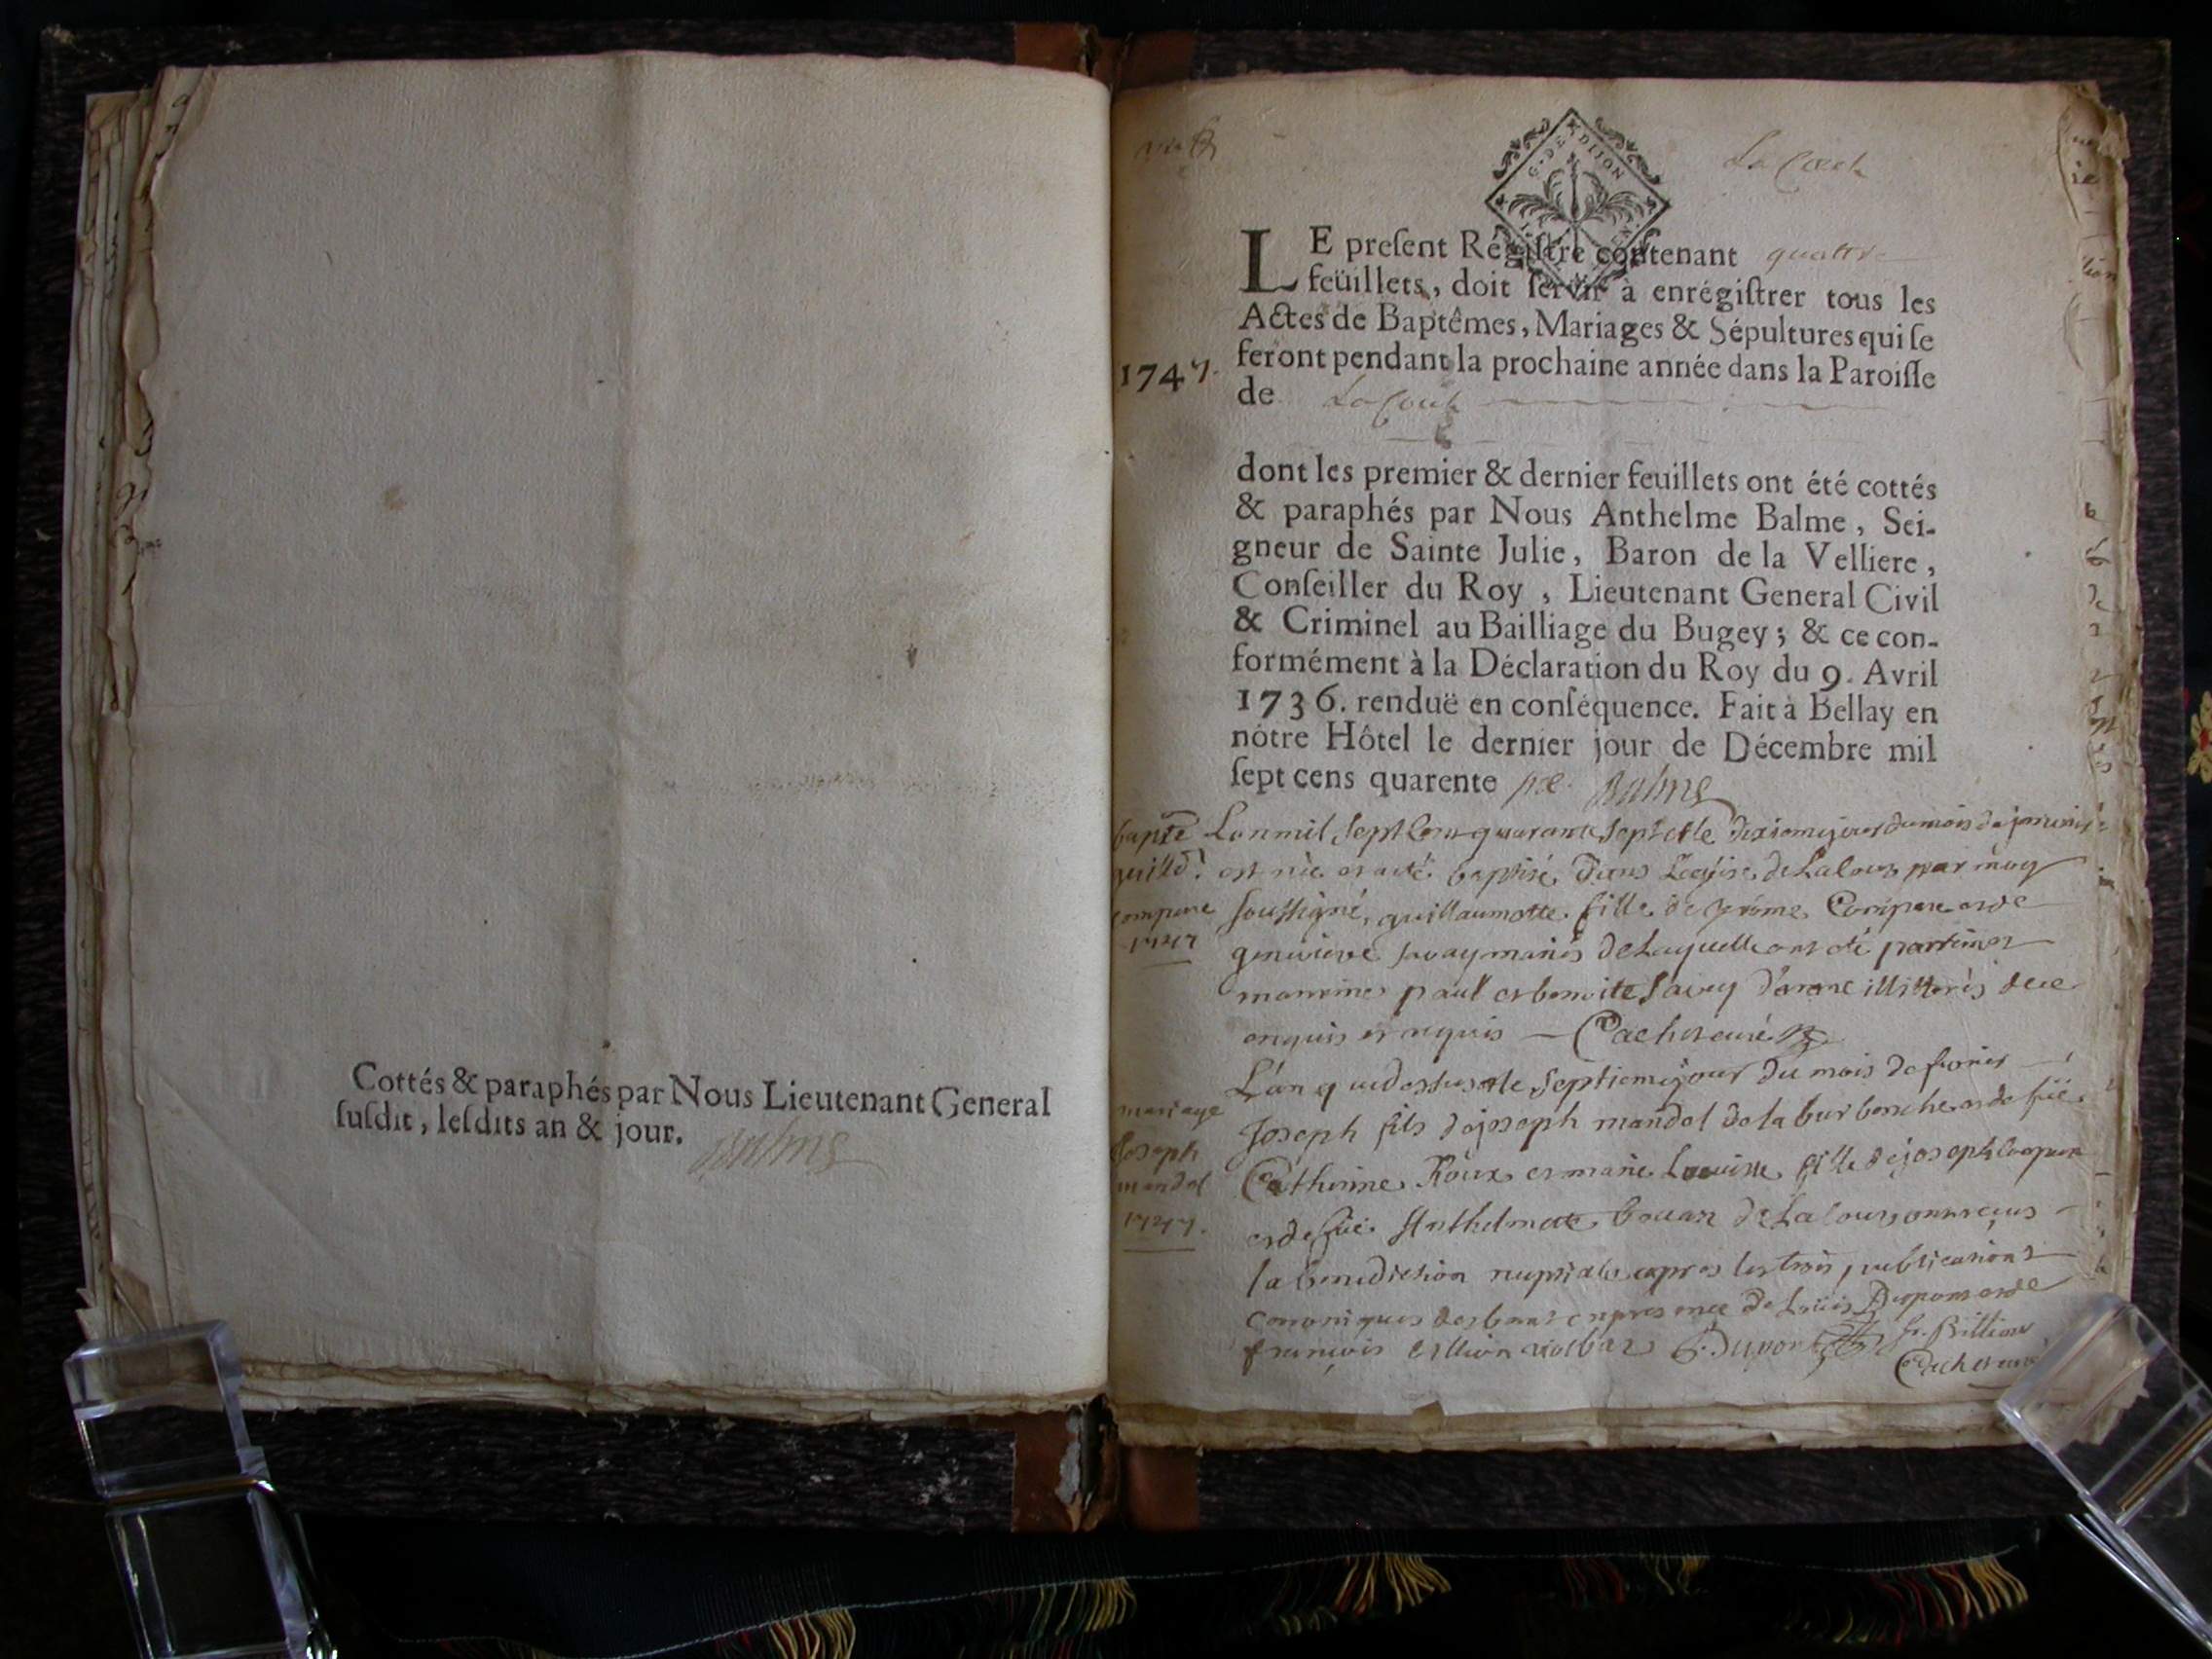 Cottés & paraphés par Nous Lieutenant General
ſuſdit, leſdits an & jour.
Balme
La Coux
G. DE DIJON
LE preſent Régiſtre contenant quattre
feüillets, doit ſervir à enrégiſtrer tous les
Actes de Baptêmes, Mariages & Sépultures qui ſe
feront pendant la prochaine année dans la Paroiſſe
1747.
de La Coux
dont les premier & dernier feuillets ont été cottés
& paraphés par Nous Anthelme Balme, Sei-
gneur de Sainte Julie, Baron de la Velliere,
Conſeiller du Roy, Lieutenant General Civil
& Criminel au Bailliage du Bugey; & ce con-
formément à la Déclaration du Roy du 9. Avril
1736. renduë en conſéquence. Fait à Bellay en
nôtre Hôtel le dernier jour de Décembre mil
ſept cens quarente six. Balme
bapte
guilld.
compere
1747
Lan mil sept cent quarante sept et le dixieme jour du mois de janvier
est née et a été baptisé dans Leglise de Laloux par moy
soussigné, guillaumette fille de Compere et de
genevieve savey mariés de Laquelle ont été parrin et
marrine paul et benoite savey illitterés de ce
enquis et requis — Cachet curé
mariage
Joseph
mandol
1747.
L'an que dessus et le septieme jour du mois de fevrier
Joseph fils de joseph mandol de la burbanche et de füe
Catherine Roux et marie Louise fille de joseph compere
et de füe Anthelmette de Laloux ont reçus
la benediction nuptiale apres les trois publications
canoniques des bans en presence de Loüis Dupont et de
françois billion Dupont fr. Billion
Cachet curé